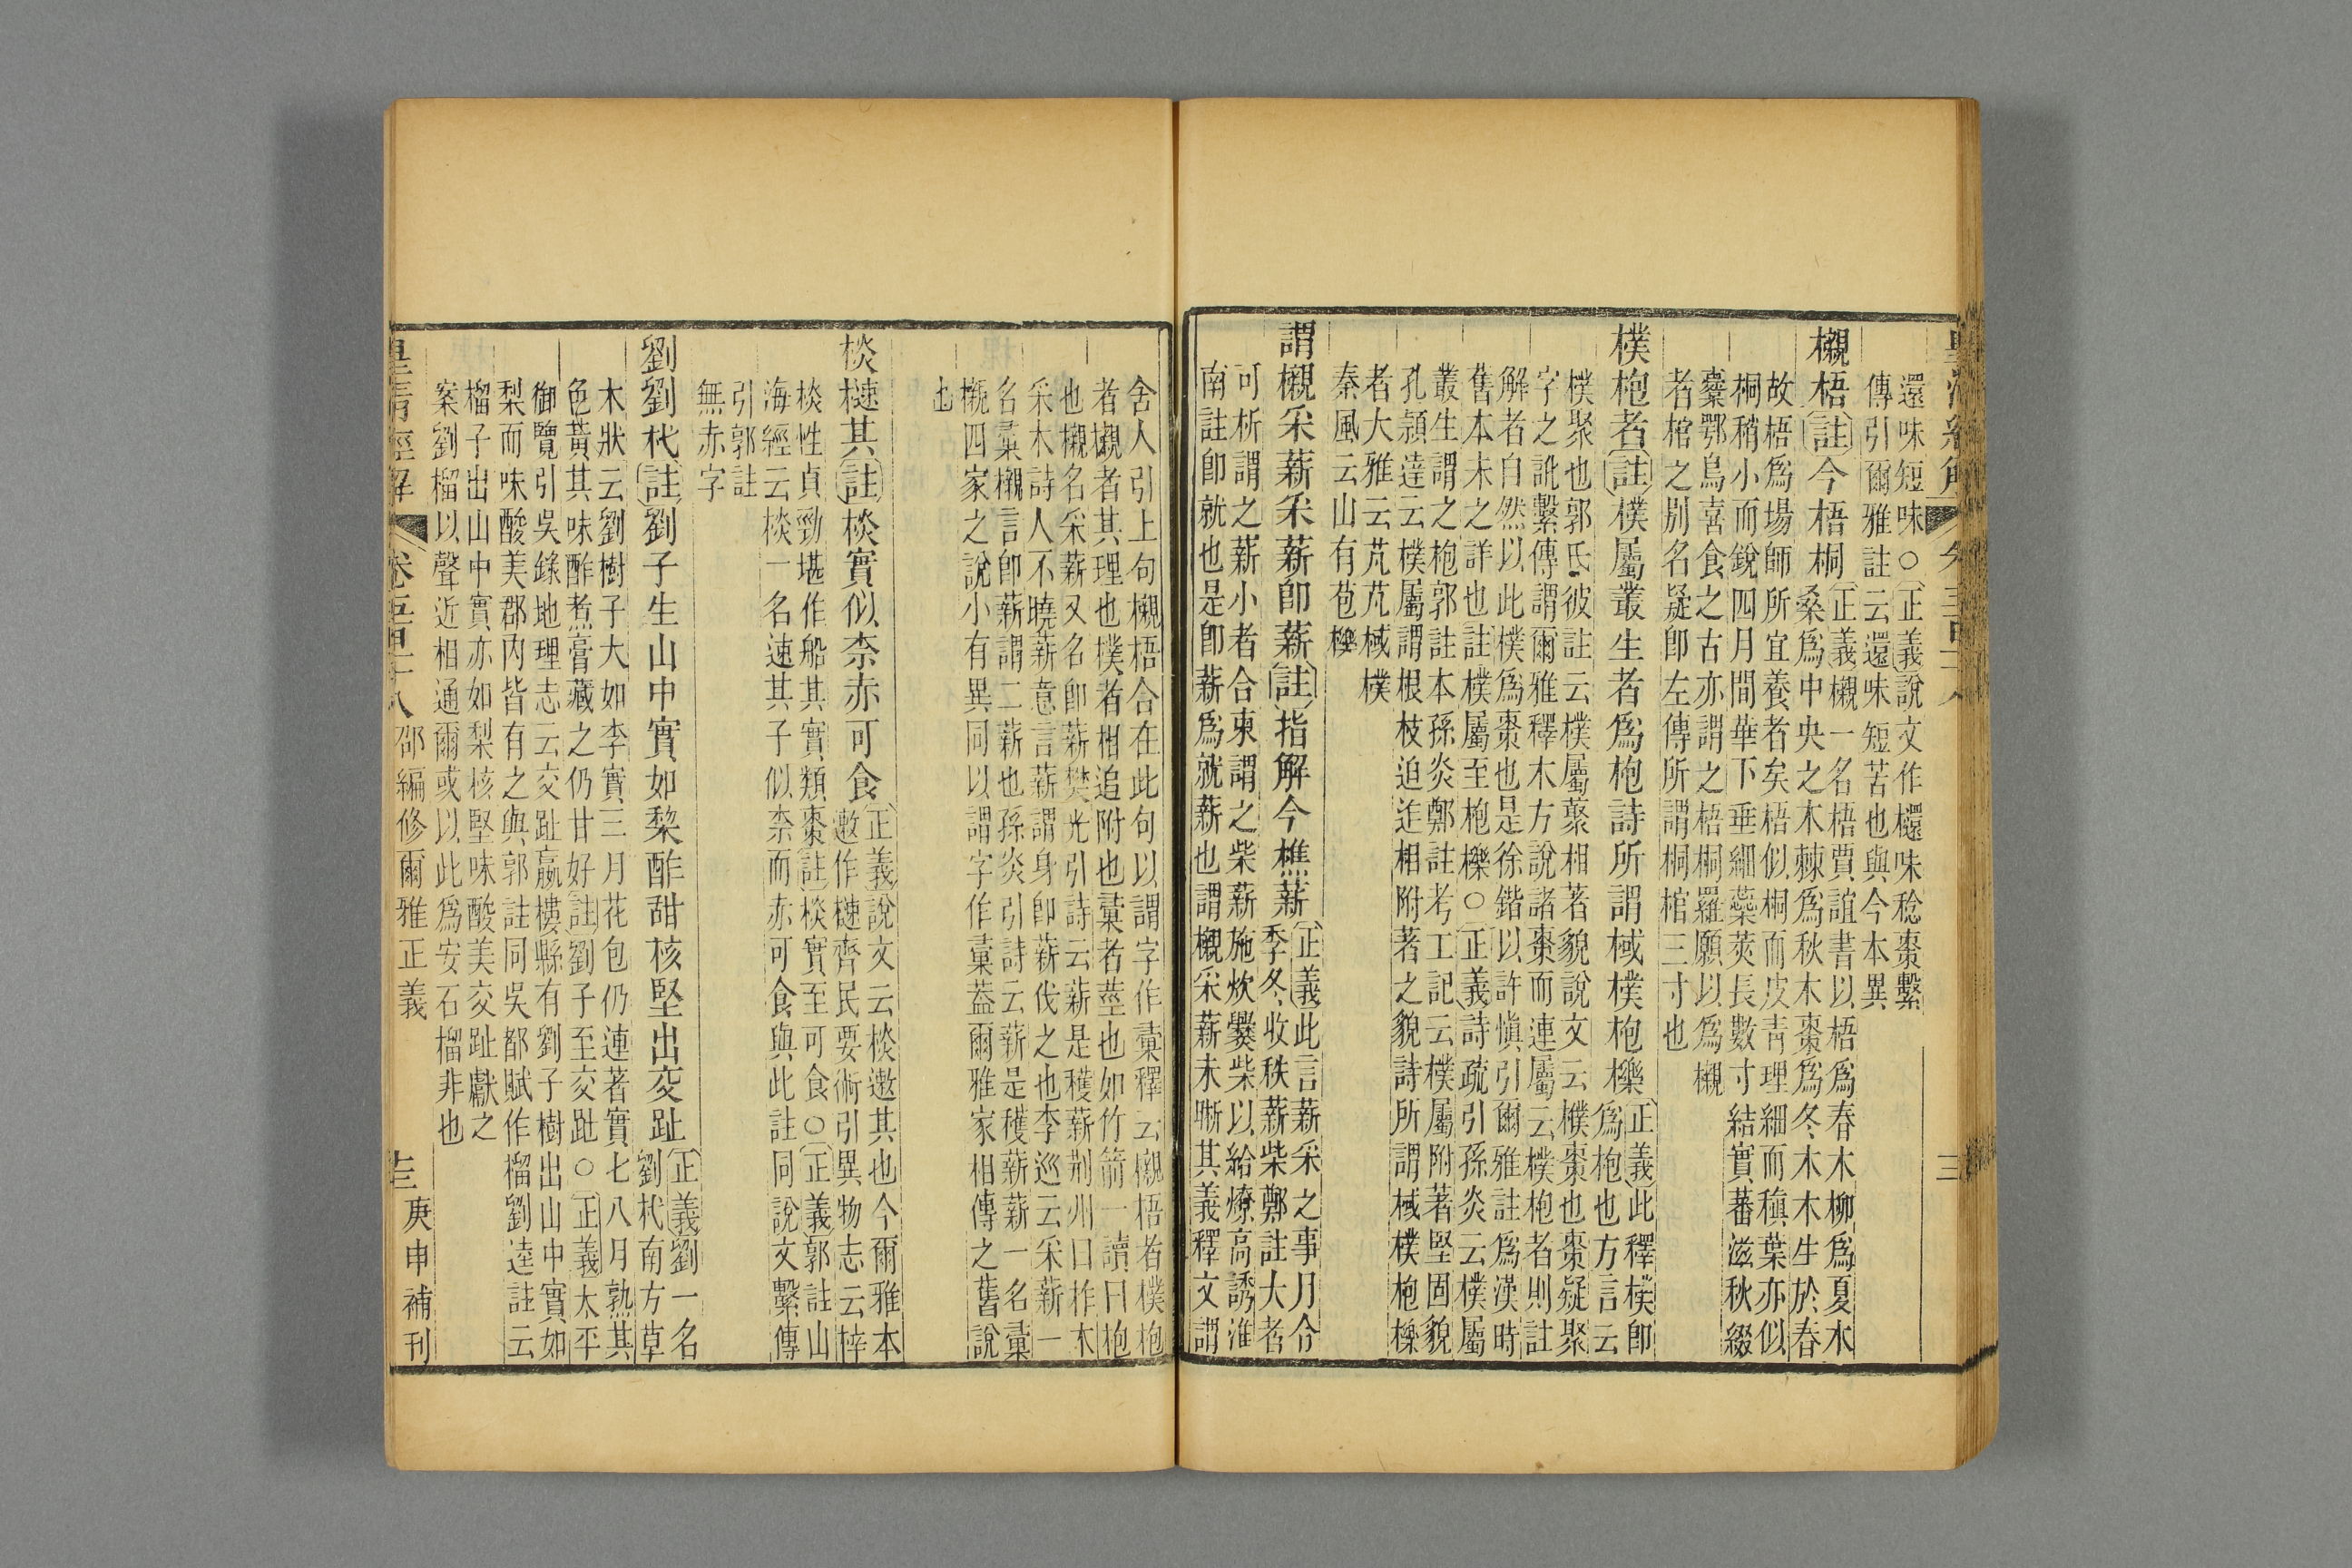 還味短味○正義說文作櫏味稔棗繫
傳引爾雅註云還味短苦也與今本異
櫬梧註今梧桐正義櫬一名梧賈誼書以梧爲春木柳爲夏木
桑爲中央之木棘爲秋木棗爲冬木木生於春
故梧爲場師所宜養者矣梧似桐而皮青理細而稹葉亦似
桐稍小而銳四月間華下垂細蘂莢長數寸結實蕃滋秋綴
櫜鄂鳥喜食之古亦謂之梧桐羅願以爲櫬
者棺之別名疑卽左傳所謂桐棺三寸也
樸枹者註樸屬叢生者爲枹詩所謂棫樸枹櫟正義此釋樸卽
爲枹也方言云
樸聚也郭氏彼註云樸屬藂相著貌說文云樸棗也棗疑聚
字之訛繫傳謂爾雅釋木方說諸棗而連屬云樸枹者則註
解者自然以此樸爲棗也是徐鍇以許愼引爾雅註爲漢時
舊本未之詳也註樸屬至枹櫟○正義詩疏引孫炎云樸屬
叢生謂之枹郭註本孫炎鄭註考工記云樸屬附著堅固貌
孔穎達云樸屬謂根枝迫迮相附著之貌詩所謂棫樸枹櫟
者大雅云芃芃棫樸
秦風云山有苞櫟
謂櫬采薪采薪卽薪註指解今樵薪正義此言薪采之事月令
季冬收秩薪柴鄭註大者
可析謂之薪小者合束謂之柴薪施炊爨柴以給燎高誘淮
南註卽就也是卽薪爲就薪也謂櫬采薪未晰其義釋文謂
舍人引上句櫬梧合在此句以謂字作彙釋云櫬梧者樸枹
者櫬者其理也樸者相追附也彙者莖也如竹箭一讀曰枹
也櫬名采薪又名卽薪樊光引詩云薪是穫薪荆州曰柞木
采木詩人不曉薪意言薪謂身卽薪伐之也李巡云采薪一
名彙櫬言卽薪謂二薪也孫炎引詩云薪是穫薪薪一名彙
櫬四家之說小有異同以謂字作彙葢爾雅家相傳之舊說
也
棪𣙙其註棪實似柰赤可食正義說文云棪遬其也今爾雅本
遬作𣙙齊民要術引異物志云梓
棪性貞勁堪作船其實類棗註棪實至可食○正義郭註山
海經云棪一名速其子似柰而赤可食與此註同說文繫傳
引郭註
無赤字
劉劉杙註劉子生山中實如棃酢甜核堅出交趾正義劉一名
劉杙南方草
木狀云劉樹子大如李實三月花包仍連著實七八月熟其
色黃其味酢煮膏藏之仍甘好註劉子至交趾○正義太平
御覽引吳錄地理志云交趾嬴𨻻縣有劉子樹出山中實如
梨而味酸美郡內皆有之與郭註同吳都賦作榴劉逵註云
榴子出山中實亦如梨核堅味酸美交趾獻之
案劉榴以聲近相通爾或以此爲安石榴非也
皇清經解 卷五百十八 邵編修爾雅正義 庚申補刊